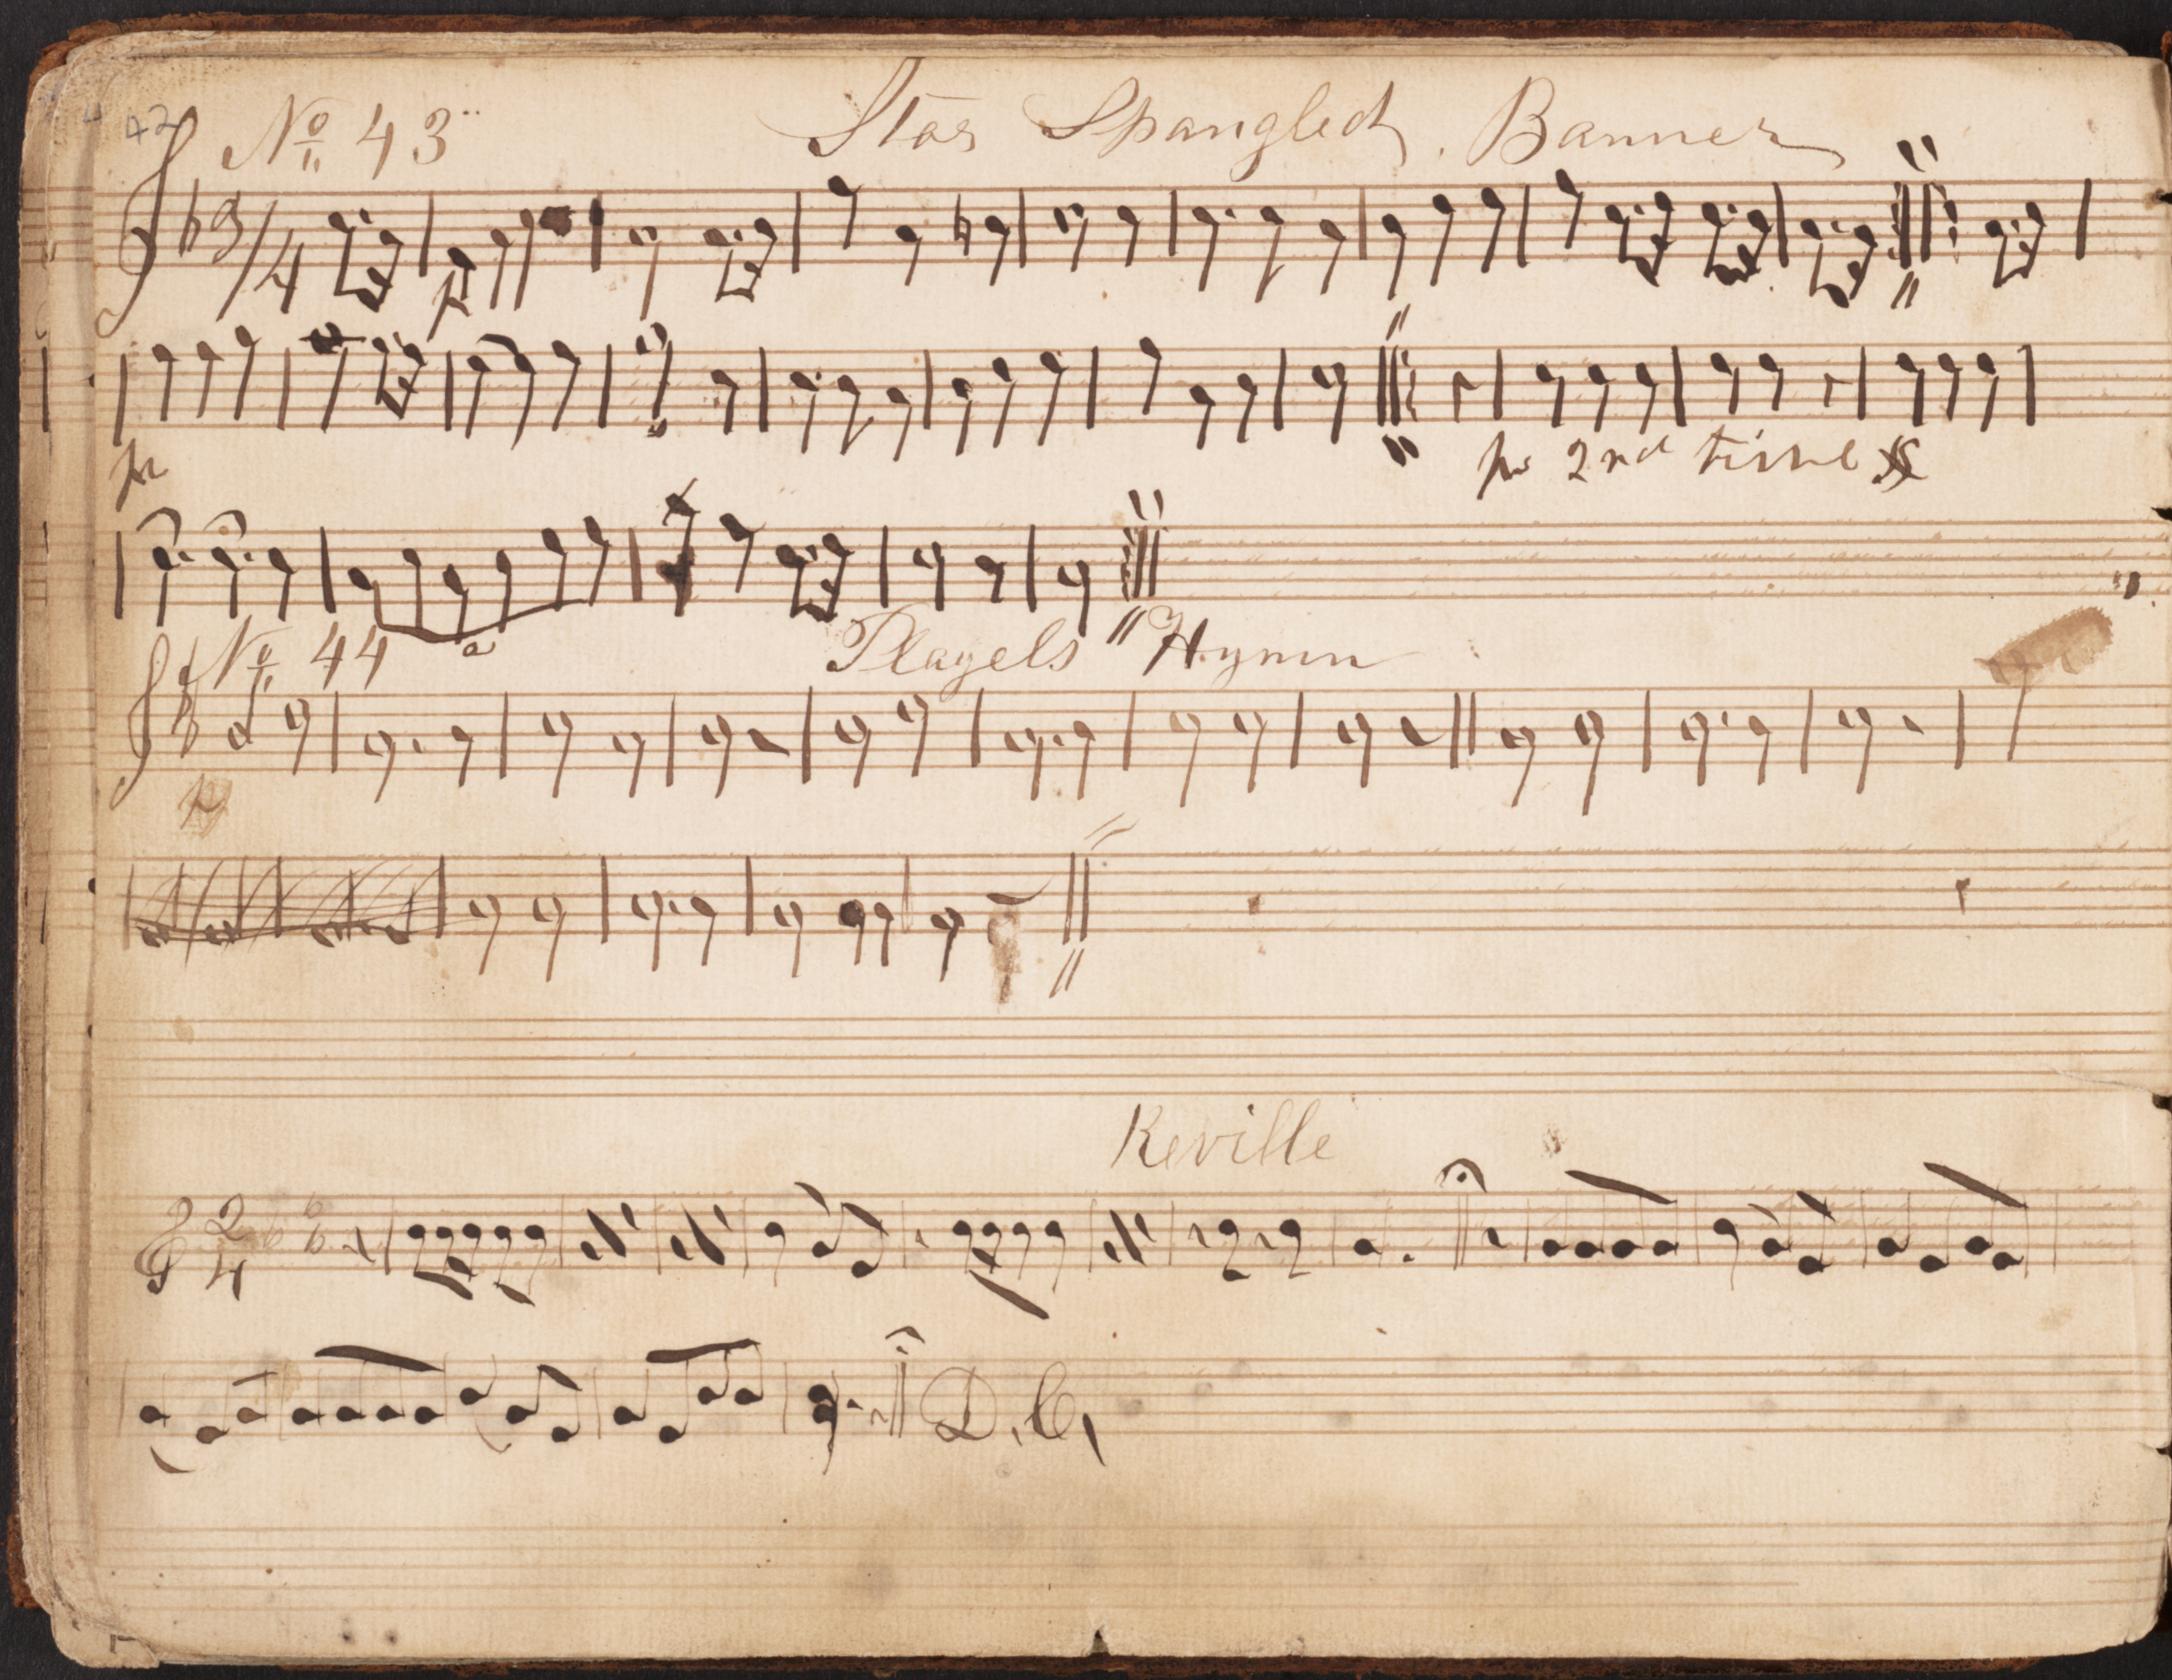 42
No 43 Star Spangled Banner
3/4
p
pp 2nd time
No 44 Playels Hymn
p
Reville
2/4
D.C.